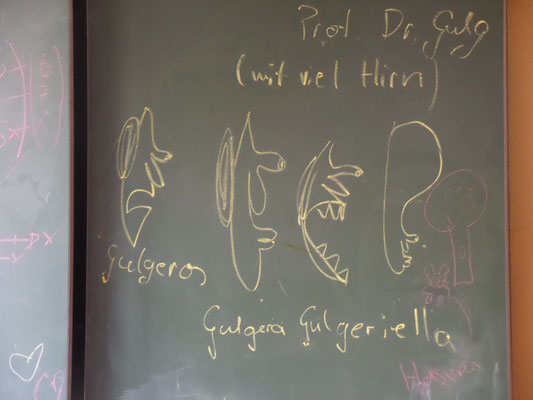 Prof. Dr. Gulg
(mit viel Hirn)
Gulgeros
Gulgera Gulgeriella